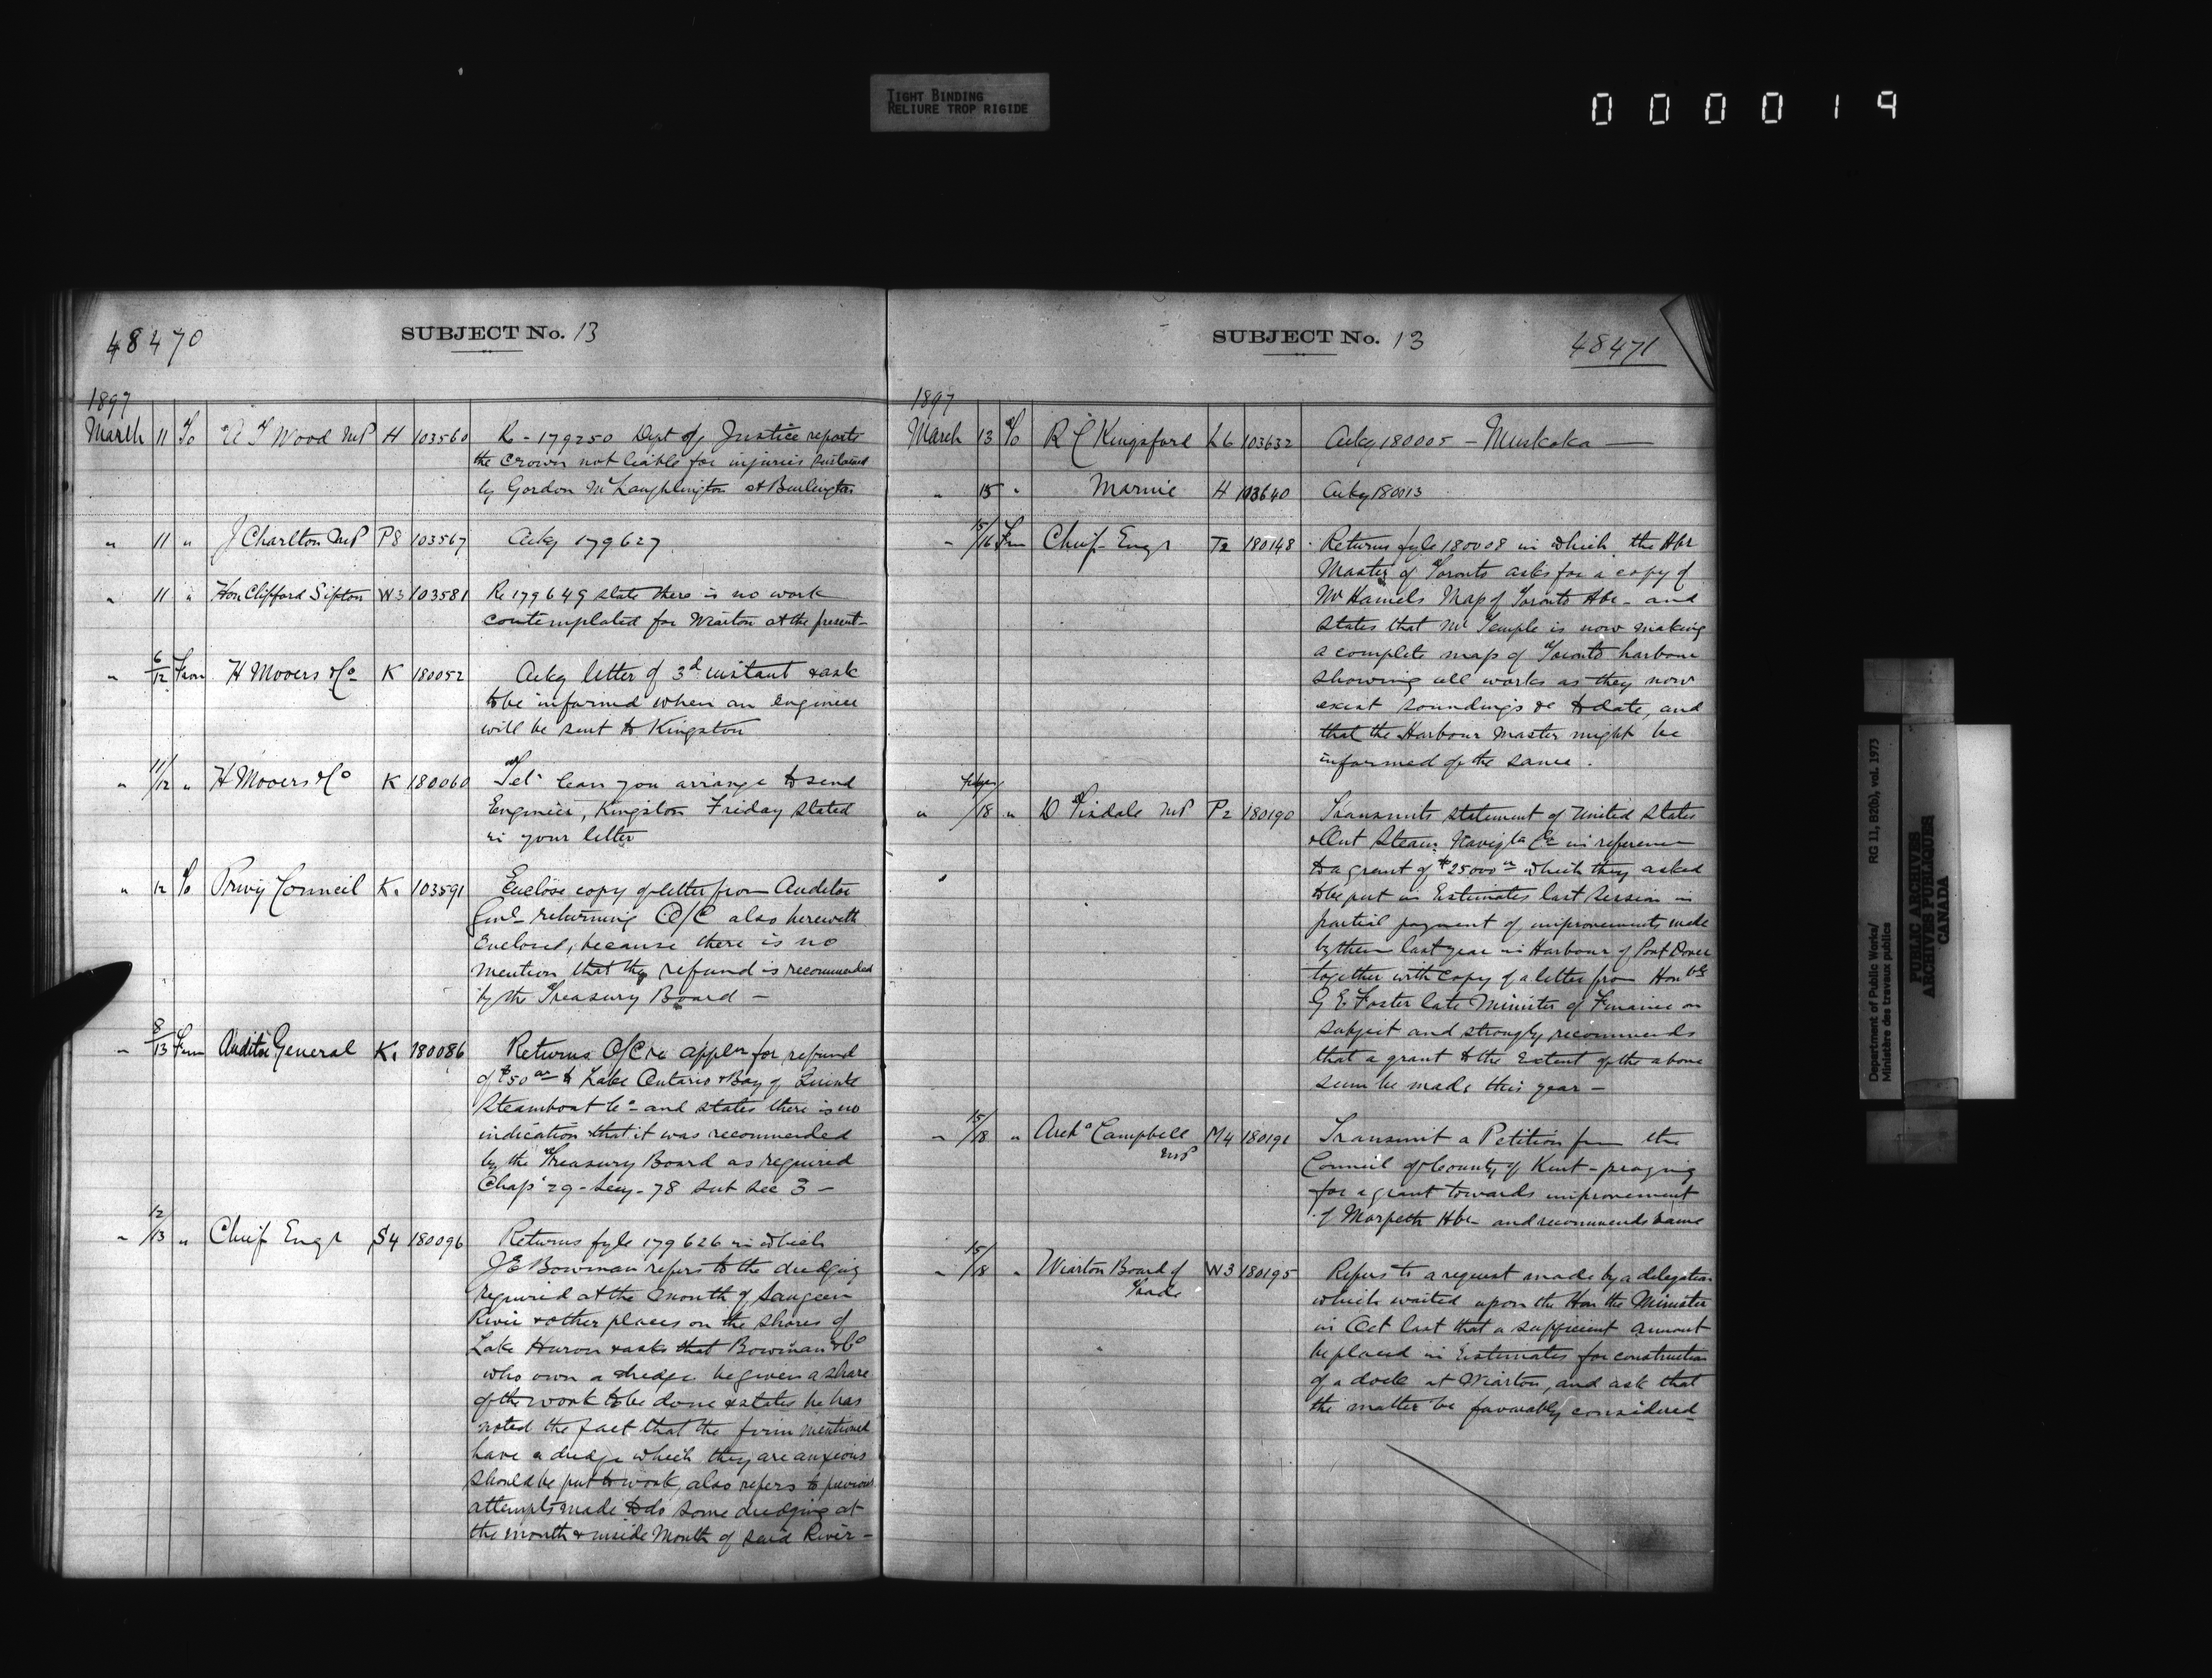 TIGHT BINDING
RELIURE TROP RIGIDE
000019
48470
SUBJECT No. 13
1897
March 11 To A T Wood MP H 103560 Re - 179250 Dept of Justice reports
the Crown not liable for injuries sustained
by Gordon McLaughlington at Burlington
" 11 " J Charlton MP P8 103567 Ackg 179627
" 11 " Hon Clifford Sifton W3 103581 Re 179649 state there is no work
contemplated for Wiarton at the present -
" 6/12 From H Mooers & Co K 180052 Ackg letter of 3d instant & ask
to be informed when an Engineer
will be sent to Kingston
" 11/12 " H Mooers & Co K 180060 Tel. Can you arrange to send
Engineer, Kingston Friday stated
in your letter
" 12 To Privy Council K1 103591 Enclose copy of letter from Auditor
Genl - returning O/C also herewith
Enclosed, because there is no
mention that the refund is recommended
by the Treasury Board -
" 8/13 From Auditor General K1 180086 Returns O/C re appln for refund
of $50 00 to Lake Ontario & Bay of Quinte
Steamboat Co - and states there is no
indication that it was recommended
by the Treasury Board as required
Chap 29 - Secy - 78 sub sec 3 -
" 12/13 " Chief Engr S4 180096 Returns fyle 179626 in which
J E Bowman refers to the dredging
required at the mouth of Saugeen
River & other places on the shores of
Lake Huron & asks that Bowman & Co
who own a dredge be given a share
of the work to be done & states he has
noted the fact that the firm mentioned
have a dredge which they are anxious
should be put to work, also refers to previous
attempts made to do some dredging at
the mouth & inside Mouth of said River -
SUBJECT No. 13
48471
1897
March 13 To R E Kingsford L6 103632 Ackg 180005 - Muskoka -
" 15 " Marine H 103640 Ackg 180013
" 15/16 From Chief Engr T2 180148 Returns fyle 180008 in which the Hbr
Master of Toronto asks for a copy of
Mr Hamels Map of Toronto Hbr - and
states that Mr Temple is now making
a complete map of Toronto harbour
showing all works as they now
exist soundings &c to date, and
that the Harbour Master might be
informed of the same.
" /18 " D Tisdale MP P2 180190 Transmits statement of United States
& Ont Steam Navigtn Co in reference
to a grant of $25000 00 which they asked
to be put in Estimates last Session in
partial payment of improvements made
by them last year in Harbour of Port Dover
together with copy of a letter from Honble
G E Foster late Minister of Finance on
subject and strongly recommends
that a grant to the extent of the above
sum be made this year -
" 15/18 " Archd Campbell M4 180191 Transmit a Petition from the
MP
Council of County of Kent - praying
for a grant towards improvement
of Morpeth Hbr - and recommends same
" 15/18 " Wiarton Board of W3 180195 Refers to a request made by a delegation
Trade
which waited upon the Hon the Minister
in Oct last that a sufficient amount
be placed in Estimates for construction
of a dock at Wiarton, and ask that
the matter be favorably considered -
Department of Public Works/
Ministère des travaux publics
RG 11, B2(b), vol. 1973
PUBLIC ARCHIVES
ARCHIVES PUBLIQUES
CANADA